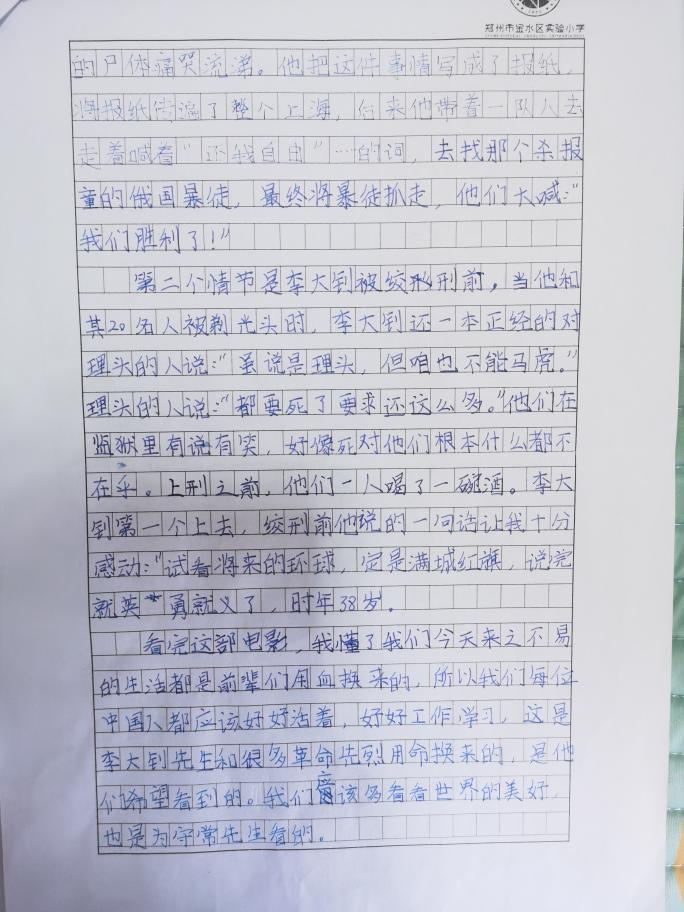 郑州市金水区实验小学
的尸体痛哭流涕。他把这件事情写成了报纸，
将报纸传遍了整个上海，后来他带着一队人去
走着喊着“还我自由”…的词，去找那个杀报
童的俄国暴徒，最终将暴徒抓走，他们大喊：“
我们胜利了！”
第二个情节是李大到被绞形刑前，当他和
其20名人被剃光头时，李大到还一本正经的对
理头的人说：“虽说是理头，但咱也不能马虎。”
理头的人说：“都要死了要求还这么多。”他们在
监狱里有说有笑，好像死对他们根本什么都不
在乎。上刑之前，他们一人喝了一碗酒。李大
到第一个上去，绞刑前他说的一句话让我十分
感动：“试看将来的环球，定是满城红旗，说完
就英勇就义了，时年38岁。
看完这部电影，我懂了我们今天来之不易
的生活都是前辈们用血换来的，所以我们每位
中国人都应该好好活着，好好工作学习，这是
李大到先生和很多革命先烈用命换来的，是他
们希望看到的。我们应该多看看世界的美好，
也是为守常先生看的。